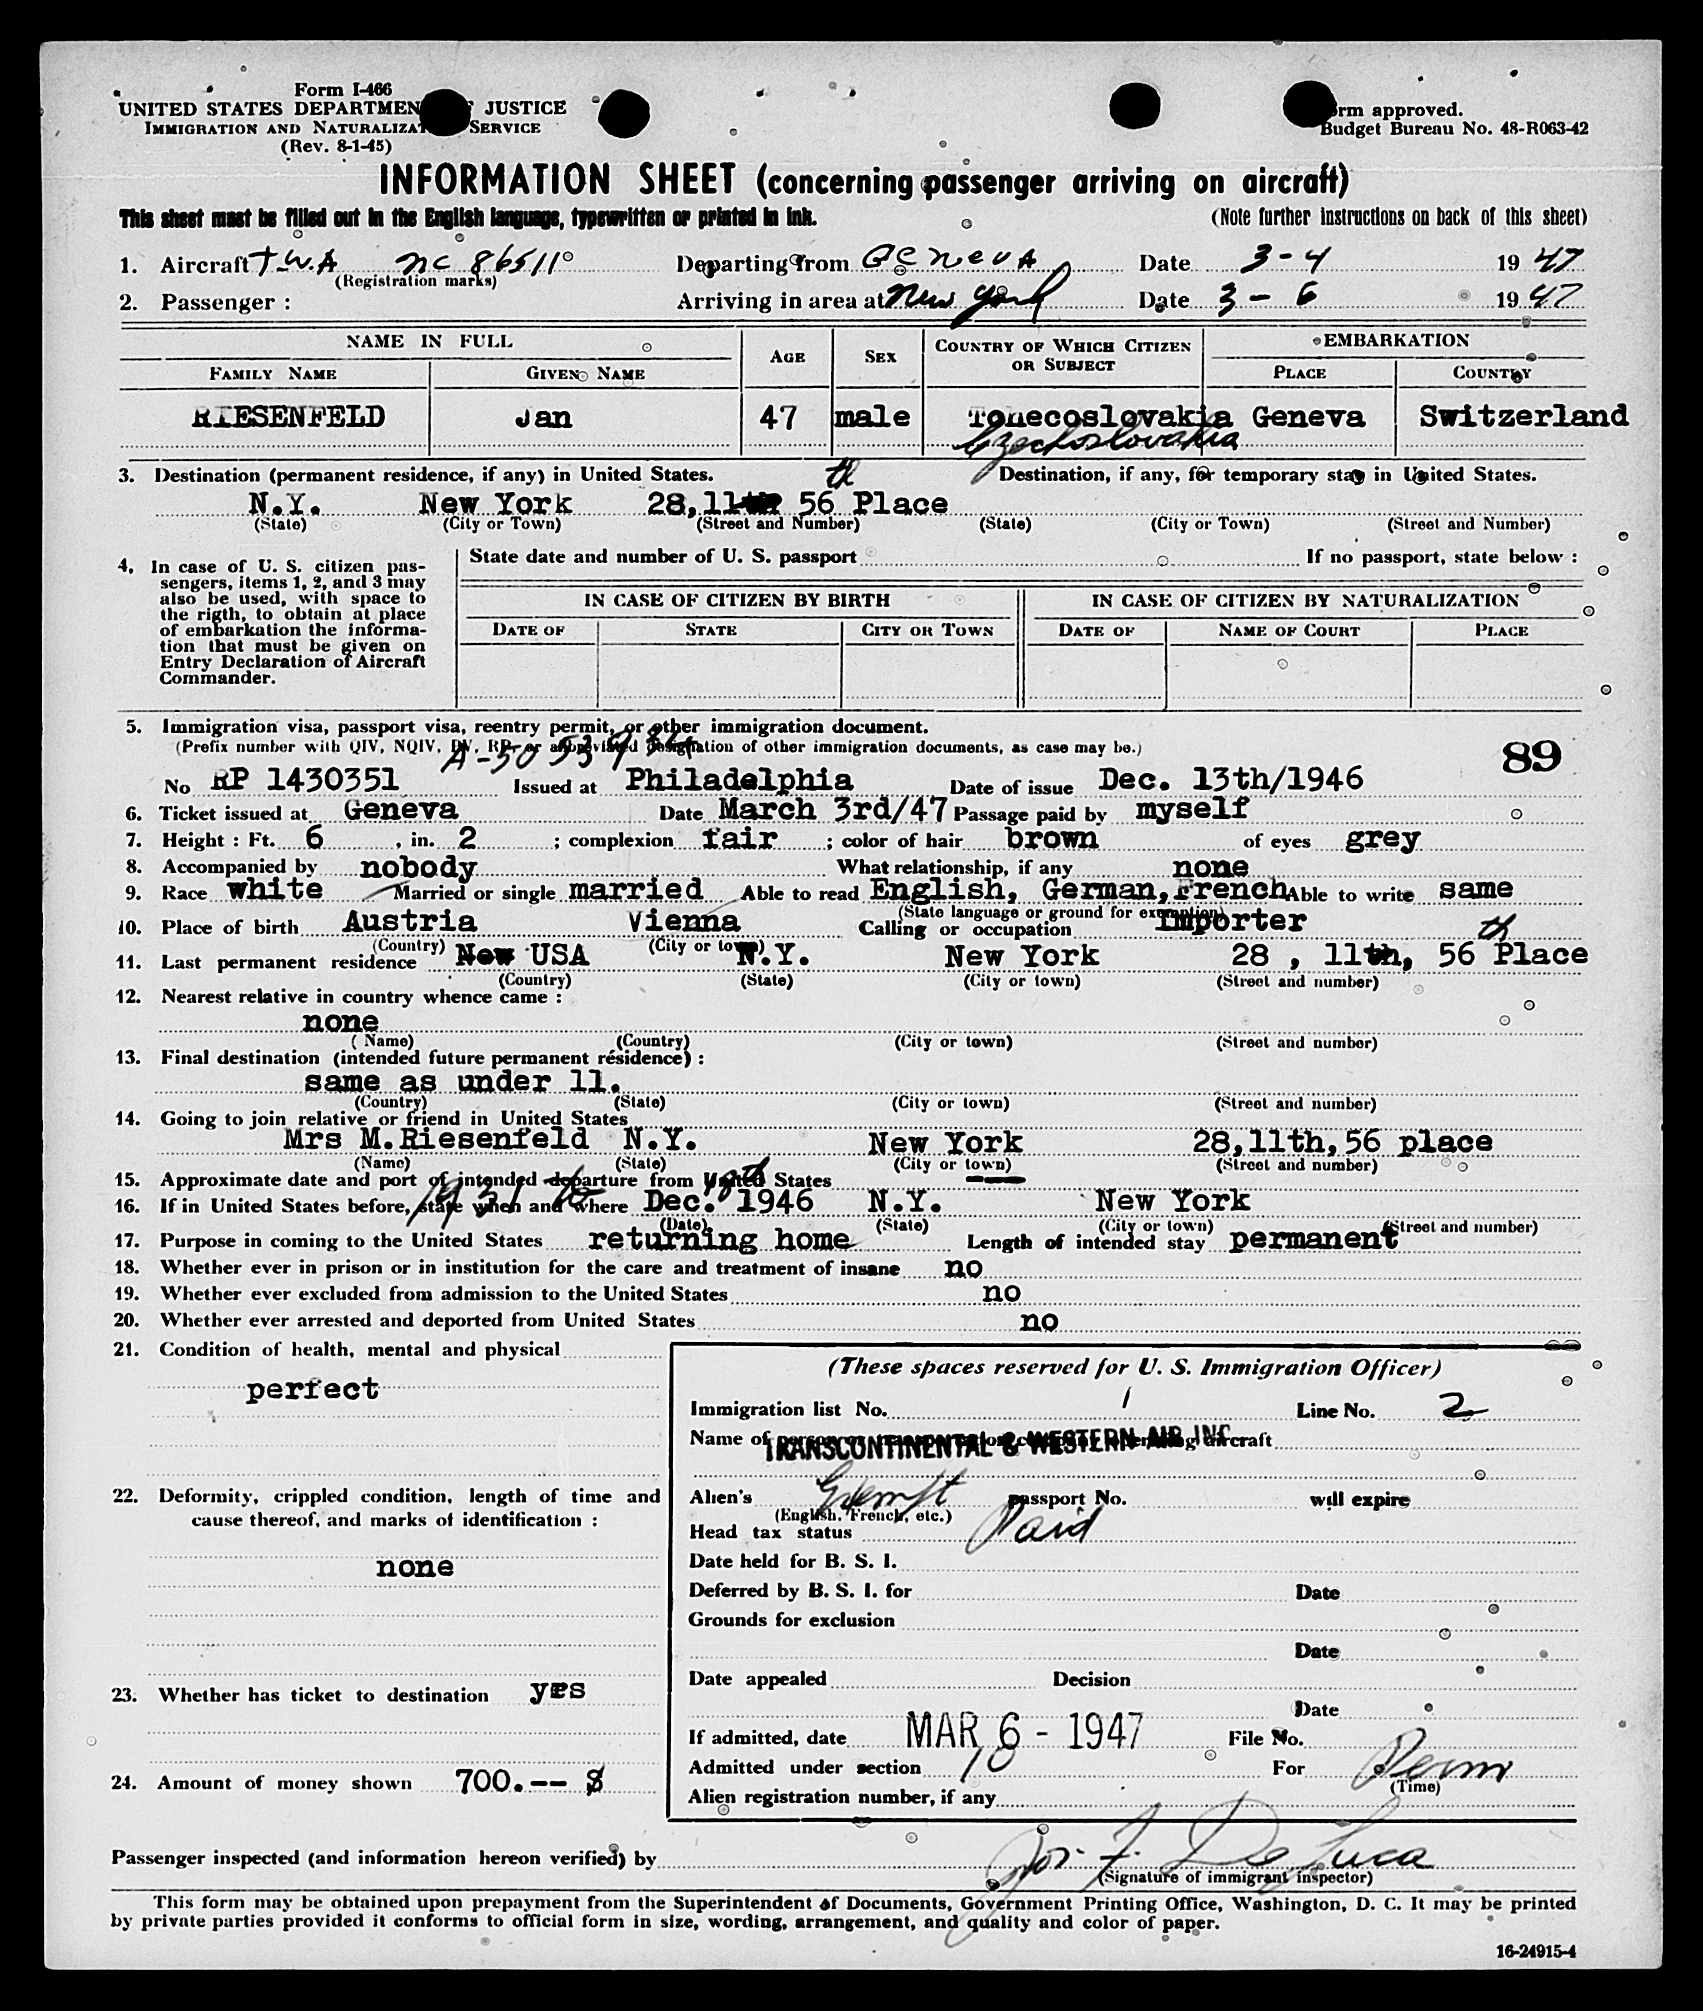 Form I-466
UNITED STATES DEPARTMENT OF JUSTICE
IMMIGRATION AND NATURALIZATION SERVICE
(Rev. 8-1-45)
Form approved.
Budget Bureau No. 48-R063-42
INFORMATION SHEET (concerning passenger arriving on aircraft)
This sheet must be filled out in the English language, typewritten or printed in ink. (Note further instructions on back of this sheet)
1. Aircraft T.W.A NC 86511 Departing from Geneva Date 3-4 19 47
(Registration marks)
2. Passenger : Arriving in area at New York Date 3-6 19 47
NAME IN FULL AGE SEX COUNTRY OF WHICH CITIZEN OR SUBJECT EMBARKATION
FAMILY NAME GIVEN NAME PLACE COUNTRY
RIESENFELD Jan 47 male Tchecoslovakia Geneva Switzerland
Czechoslovakia
3. Destination (permanent residence, if any) in United States. Destination, if any, for temporary stay in United States.
th
N.Y. New York 28,11 56 Place
(State) (City or Town) (Street and Number) (State) (City or Town) (Street and Number)
4. In case of U. S. citizen pas-
sengers, items 1, 2, and 3 may
also be used, with space to
the rigth, to obtain at place
of embarkation the informa-
tion that must be given on
Entry Declaration of Aircraft
Commander.
State date and number of U. S. passport If no passport, state below :
IN CASE OF CITIZEN BY BIRTH IN CASE OF CITIZEN BY NATURALIZATION
DATE OF STATE CITY OR TOWN DATE OF NAME OF COURT PLACE
5. Immigration visa, passport visa, reentry permit, or other immigration document.
(Prefix number with QIV, NQIV, PV, RP, or abbreviated designation of other immigration documents, as case may be.)
89
No RP 1430351 Issued at Philadelphia Date of issue Dec. 13th/1946
6. Ticket issued at Geneva Date March 3rd/47 Passage paid by myself
7. Height : Ft. 6 , in. 2 ; complexion fair ; color of hair brown of eyes grey
8. Accompanied by nobody What relationship, if any none
9. Race white Married or single married Able to read English, German,French Able to write same
(State language or ground for exemption)
10. Place of birth Austria Vienna Calling or occupation Importer
(Country) (City or town) th
11. Last permanent residence New USA N.Y. New York 28 , 11th, 56 Place
(Country) (State) (City or town) (Street and number)
12. Nearest relative in country whence came :
none
(Name) (Country) (City or town) (Street and number)
13. Final destination (intended future permanent résidence) :
same as under 11.
(Country) (State) (City or town) (Street and number)
14. Going to join relative or friend in United States
Mrs M.Riesenfeld N.Y. New York 28,11th,56 place
(Name) (State) (City or town) (Street and number)
15. Approximate date and port of intended departure from United States ---
16. If in United States before, state when and where 1931 to Dec. 1946 N.Y. New York
(Date) (State) (City or town) (Street and number)
17. Purpose in coming to the United States returning home Length of intended stay permanent
18. Whether ever in prison or in institution for the care and treatment of insane no
19. Whether ever excluded from admission to the United States no
20. Whether ever arrested and deported from United States no
21. Condition of health, mental and physical
perfect
22. Deformity, crippled condition, length of time and
cause thereof, and marks of identification :
none
23. Whether has ticket to destination yes
24. Amount of money shown 700.-- $
(These spaces reserved for U. S. Immigration Officer)
Immigration list No. 1 Line No. 2
Name of person or transportation company operating aircraft
TRANSCONTINENTAL & WESTERN AIR INC.
Alien's Exempt passport No. will expire
(English, French, etc.)
Head tax status Paid
Date held for B. S. I.
Deferred by B. S. I. for Date
Grounds for exclusion
Date
Date appealed Decision
Date
If admitted, date MAR 6 - 1947 File No.
Admitted under section 10 For Perm
(Time)
Alien registration number, if any
Passenger inspected (and information hereon verified) by Jos. F. De Luca
(Signature of immigrant inspector)
This form may be obtained upon prepayment from the Superintendent of Documents, Government Printing Office, Washington, D. C. It may be printed
by private parties provided it conforms to official form in size, wording, arrangement, and quality and color of paper.
16-24915-4